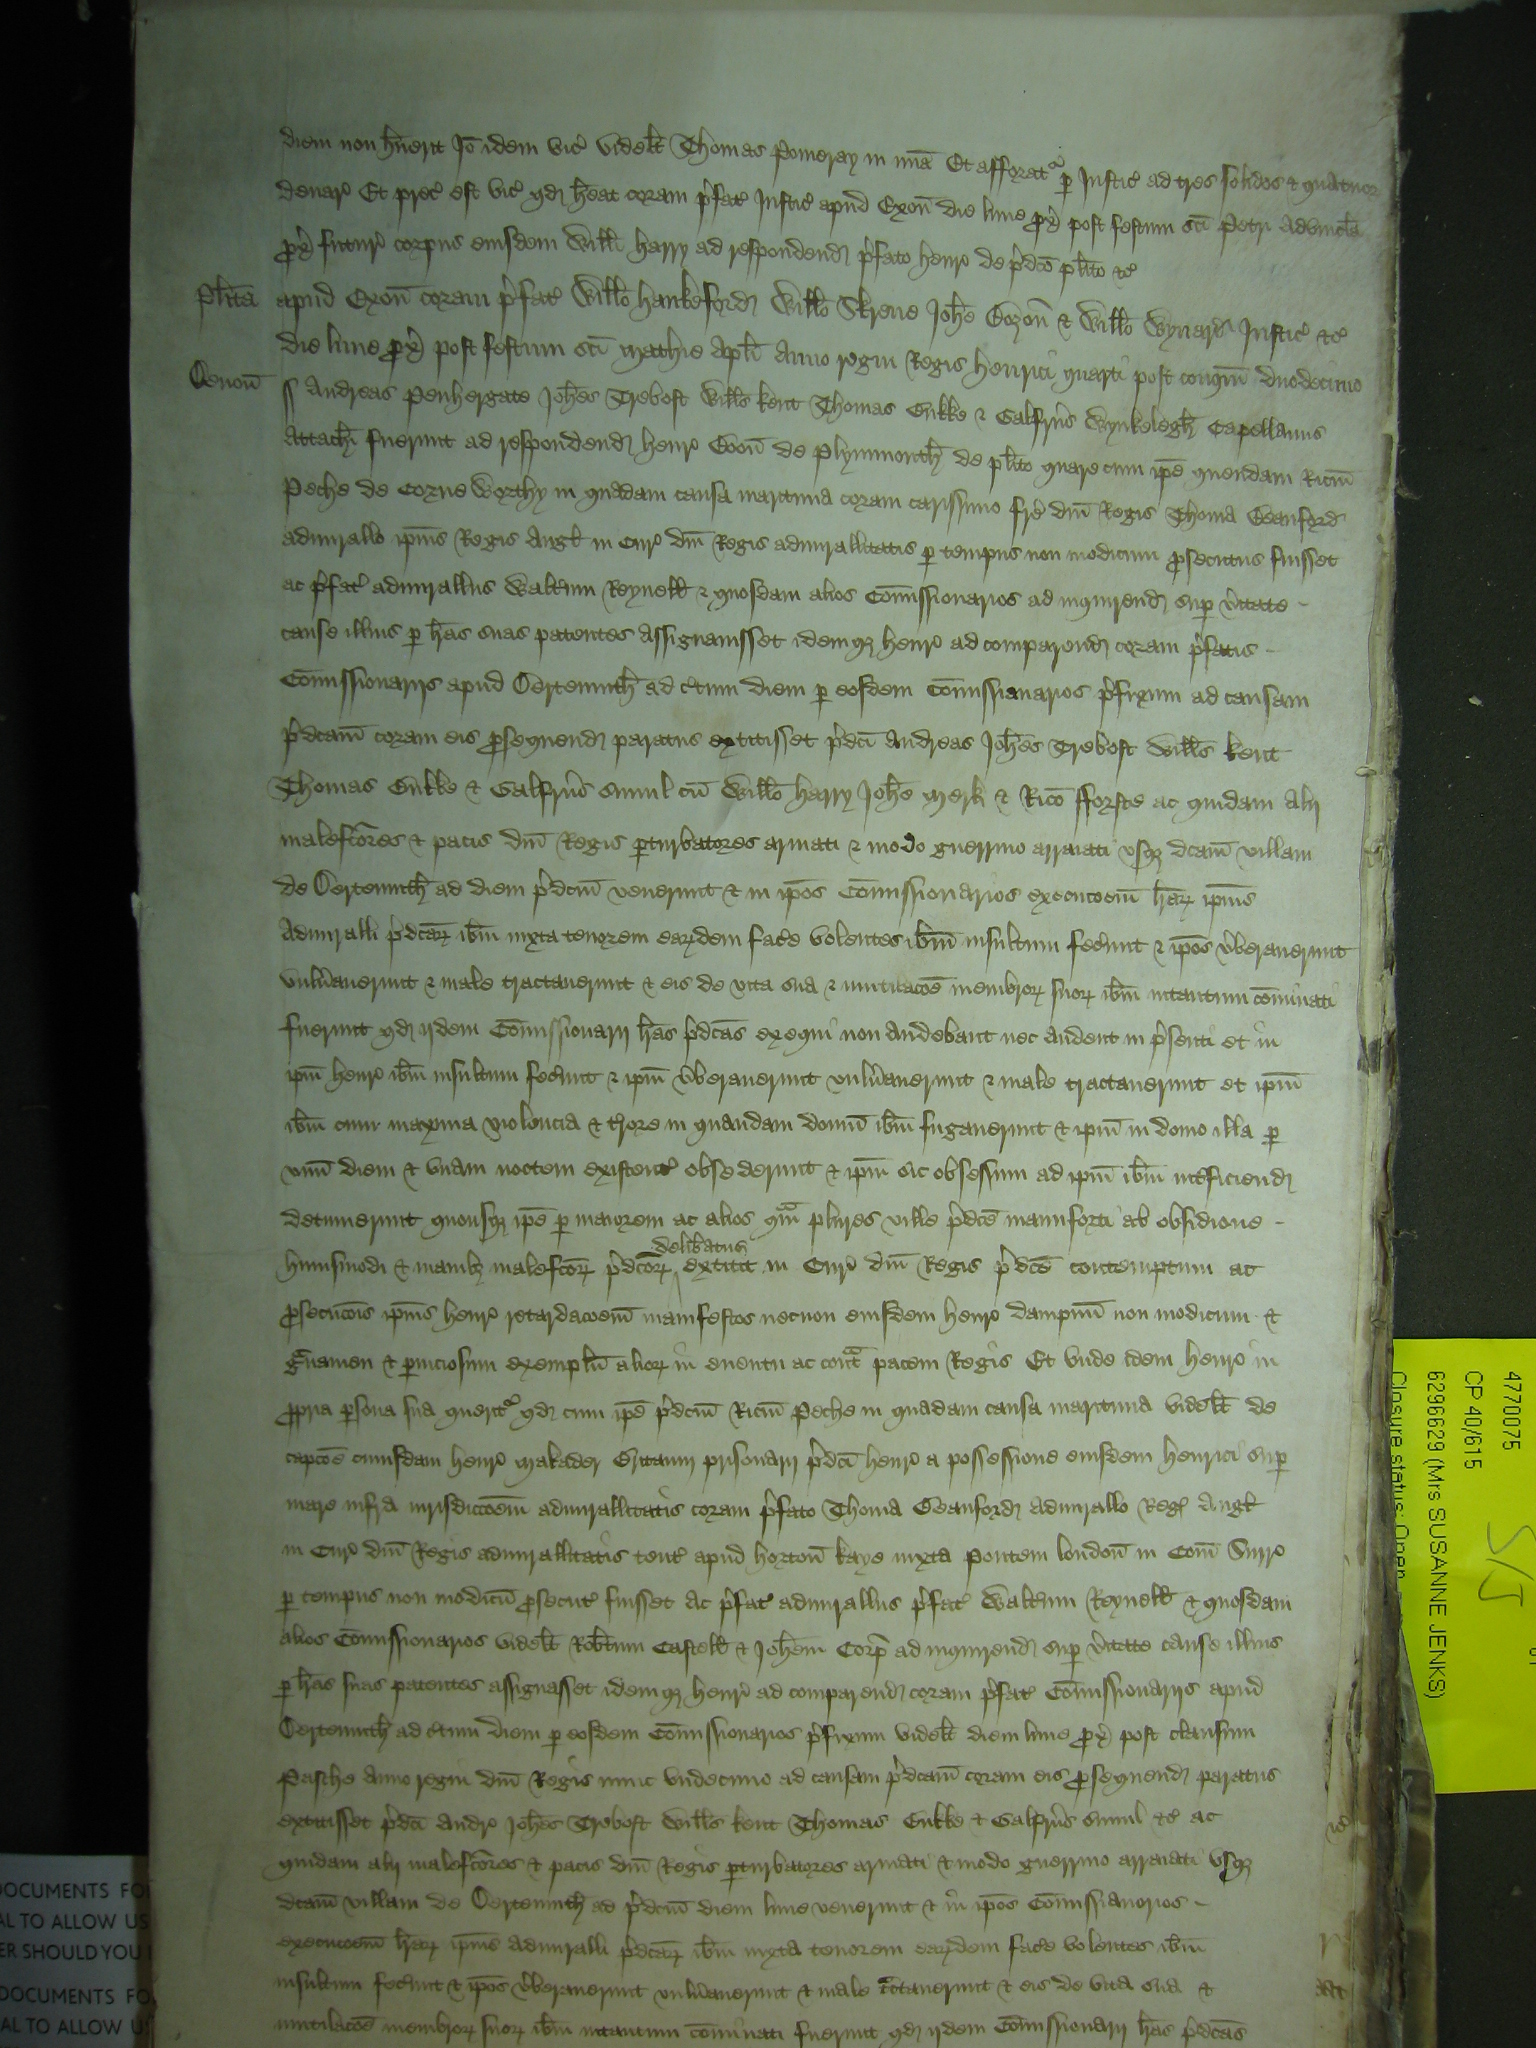 diem non h̄uerit Jō idem vic̄ videlt̄ Thomas Pomeray in m̄ia Et afforatr̄ p Justic̄ ad tres solidos & quatuor
denar̄ Et prec̄ est vic̄ qd h̄eat coram p̄fat̄ Justic̄ apud Exon̄ die lune px̄ post festum sc̄i Petri Advincl̄a
px̄ futur̄ corpus eiusdem Willi Harry ad respondend p̄fato Henr̄ de p̄dc̄o pl̄ito &c̄
Pl̄ita apud Exon̄ coram p̄fat̄ Willo Hankeford Willo Skrene Joh̄e & Willo Wynard Justic̄ &c̄
die lune px̄ post festum sc̄i Mathie Apl̄i Anno regni Regis Henrici quarti post conqm̄ duodecimo
Deuon̄ ss Andreas Penhergate Joh̄es Trebost Will̄s Kent Thomas Cukke & Galfrūs Wynkelegh Capellanus
Attach̄ fuerunt ad respondend Henr̄ Don̄ de Plymmouth̄ de pl̄ito quare cum ip̄e quendam Ric̄m
Peche de Corneworthy in quadam causa maritima coram carissimo fr̄e dn̄i Regis Thoma Beauford
admirallo ip̄ius Regis Angl̄ in Cur̄ dn̄i Regis admirallitatis p tempus non modicum psecutus fuisset
ac p̄fat̄ admirallus Walt̄um Reynell̄ & quosdam alios Com̄issionarios ad inquirend sup v̄itate
cause illius p l̄ras suas patentes Assignauisset idemq̨ Henr̄ ad comparend coram p̄fatis
Com̄issionariis apud Dertemuth̄ ad c̄tum diem p eosdem Com̄issionarios p̄fixum ad causam
p̄dc̄am coram eis psequend paratus extitisset p̄dc̄i Andreas Joh̄es Trebost Will̄s Kent
Thomas Cukke & Galfrūs simul cū Willo Harry Joh̄e Merk & Ric̄o fforste ac quidam alij
malefc̄ores & pacis dn̄i Regis pturbatores armati & modo guerrino arraiati vsq̨ dc̄am villam
de Dertemuth̄ ad diem p̄dc̄m venerunt & in ip̄os Com̄issionarios execuc̄oem l̄rar̨ ip̄ius
Admiralli p̄dc̄ar̨ ib̄m iuxta tenorem ear̨dem fac̄e volentes ib̄m insultum fec̄unt & ip̄os v̄berauerunt
vuln̄auerunt & male tractauerunt & eis de vita sua & mutilac̄oe membror̨ suor̨ ib̄m intantum com̄inati
fuerunt qd ijdem Com̄issionarij l̄ras p̄dc̄as exequi non Audebant nec Audent in p̄senti et in
ip̄m Henr̄ ib̄m insultum fec̄unt & ip̄m v̄berauerunt vuln̄auerunt & male tractauerunt et ip̄m
ib̄m cum maxima violencia & t̄rore in quandam domū ib̄m fugauerunt & ip̄m in domo illa p
vnū diem & vnam noctem existent̄ obsederunt & ip̄m sic obsessum ad ip̄m ib̄m int̄ficiend
detinuerunt quousq̨ ip̄e p maiorem ac alios qm̄ plures ville p̄dc̄e manuforti ab obsidione
huiusmodi & manib̨ malefc̄or̨ p̄dc̄or̨ delib̄atus extitit in Cur̄ dn̄i Regis p̄dc̄e contemptum ac
psecuc̄ois ip̄ius Henr̄ retardac̄oem manifestos necnon eiusdem Henr̄ dampnū non modicum &
g̊uamen & pniciosum exemplū alior̨ in euentu ac cont̊ pacem Regis Et vnde idem Henr̄ in
ppria psona sua querit̄ qd cum ip̄e p̄dc̄m Ric̄m Peche in quadam causa maritima videlt̄ de
capc̄oe cuiusdam Henr̄ Makader Brittanni prisonarij p̄dc̄i Henr̄ a possessione eiusdem Henrici sup
mare infra iurisdicc̄oem admirallitatis coram p̄fato Thoma Beauford Admirallo Reg̨ Angl̄
in Cur̄ dn̄i Regis admirallitatis tent̄ apud Horton̄ Kaye iuxta Pontem london̄ in Com̄ Surr̄
p tempus non modicū psecut̄ fuisset Ac p̄fat̄ admirallus p̄fat̄ Walt̄um Reynell̄ & quosdam
alios Com̄issionarios videlt̄ Rob̄tum Castell̄ & Joh̄em Corp̄ ad inquirend sup v̄itate cause illius
p l̄ras suas patentes assignasset idemq̨ Henr̄ ad comparend coram p̄fat̄ Com̄issionarijs apud
Dertemuth̄ ad c̄tum diem p eosdem Com̄issionarios p̄fixum videlt̄ diem lune px̄ post clausum
Pasche Anno regni dn̄i Regis nunc vndecimo ad causam p̄dc̄am coram eis psequend paratus
extitisset p̄dc̄i Andr̄ Joh̄es Trebost Will̄s Kent Thomas Cukke & Galfrūs simul &c̄ ac
quidam alij malefc̄ores & pacis dn̄i Regis pturbatores armati & modo guerrino arraiati vsq̨
dc̄am villam de Dertemuth̄ ad p̄dc̄m diem lune venerunt & in ip̄os Com̄issionarios
execuc̄oem l̄rar̨ ip̄ius Admiralli p̄dc̄ar̨ ib̄m iuxta tenorem ear̨dem fac̄e volentes ib̄m
insultum fec̄unt & ip̄os v̄berauerunt vuln̄auerunt & male tc̊tauerunt & eis de vita sua &
mutilac̄oe membror̨ suor̨ ib̄m intantum com̄inati fuerunt qd ijdem Com̄issionarij l̄ras p̄dc̄as
4770075
CP 40/615
6296629 (Mrs SUSANNE JENKS)
Closure status: Open
S/J
DOCUMENTS FO
AL TO ALLOW US
ER SHOULD YOU
DOCUMENTS FO
AL TO ALLOW U